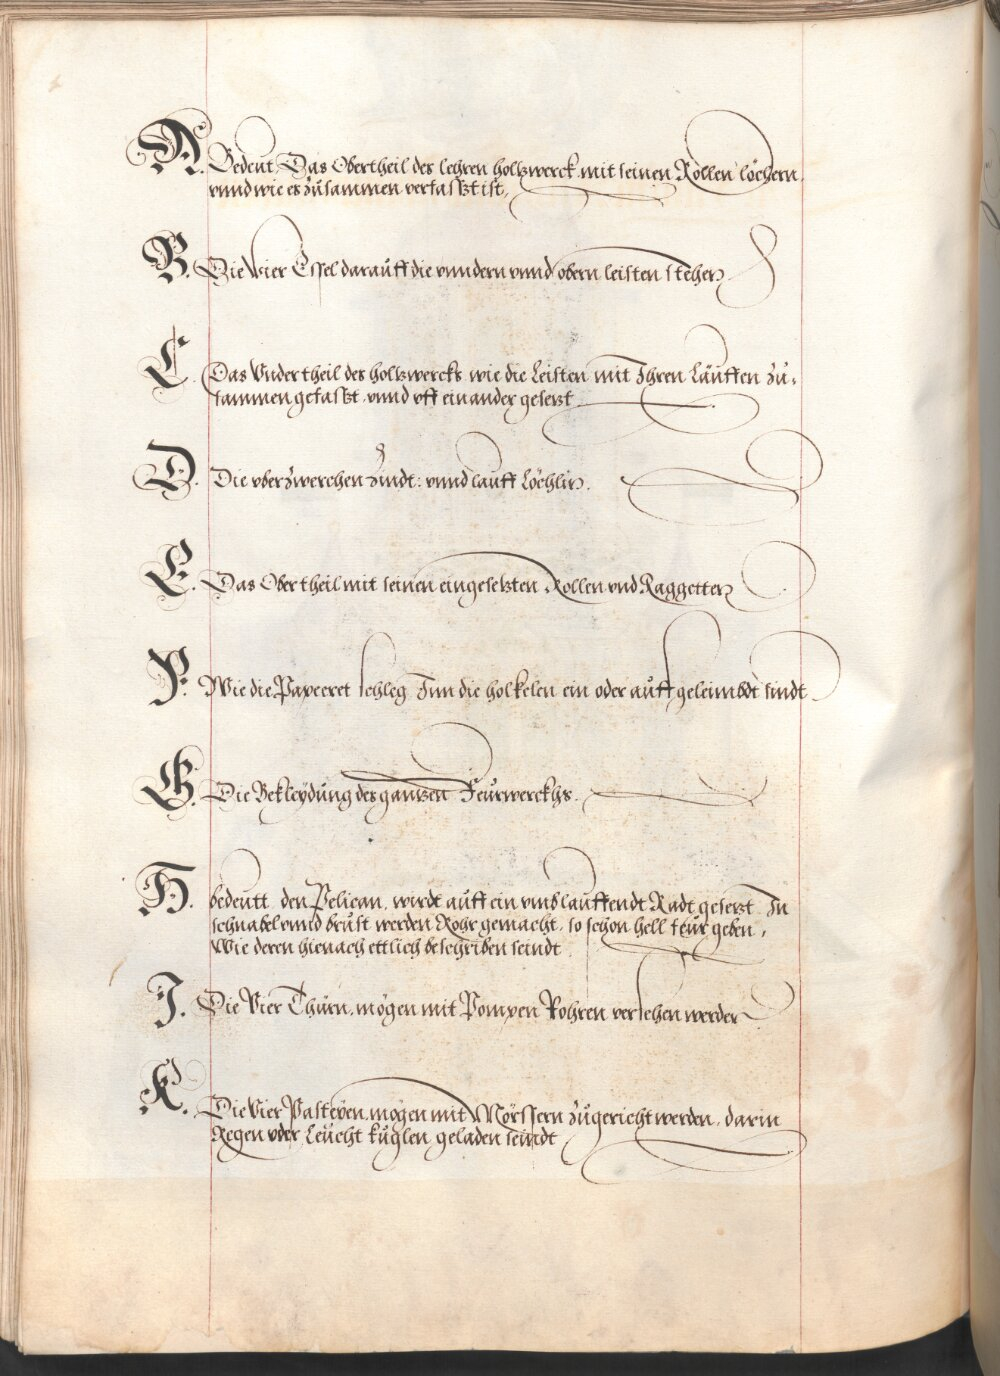 A. Bedeut Das Obertheil des lehren holtzwerck mit seinen Rollen löchern,
vnnd wie es zusammen verfasszt ist,
B. Die Vier Essel darauff die vnndern vnnd obern leisten stehen
C. Das Vndertheil des holtzwercks wie die Leisten mit Ihren Läuffen zu-
sammen gefasszt, vnnd vff einander gesetzt
D. Die vberzwerchen zindt: vnnd lauff Löchlin.
E. Das Obertheil mit seinen eingesetzten Rollen vnd Raggetten
F. Wie die Papeeret schleg Inn die holkelen ein oder auff geleimbdt sindt
G. Die Bekleydung des gantzen Feurwerckhs.
H. bedeutt den Pelican, wirdt auff ein vmblauffendt Radt gesetzt In
schnabel vnnd brust werden Rohr gemacht, so schon hell feur geben,
Wie deren hienach ettlich beschriben seindt
I. Die Vier Thürn, mögen mit Pompen Rohren versehen werden
K. Die Vier Pasteyen, mogen mit Mörssern zugericht werden, darin
Regen oder Leucht kuglen geladen seindt